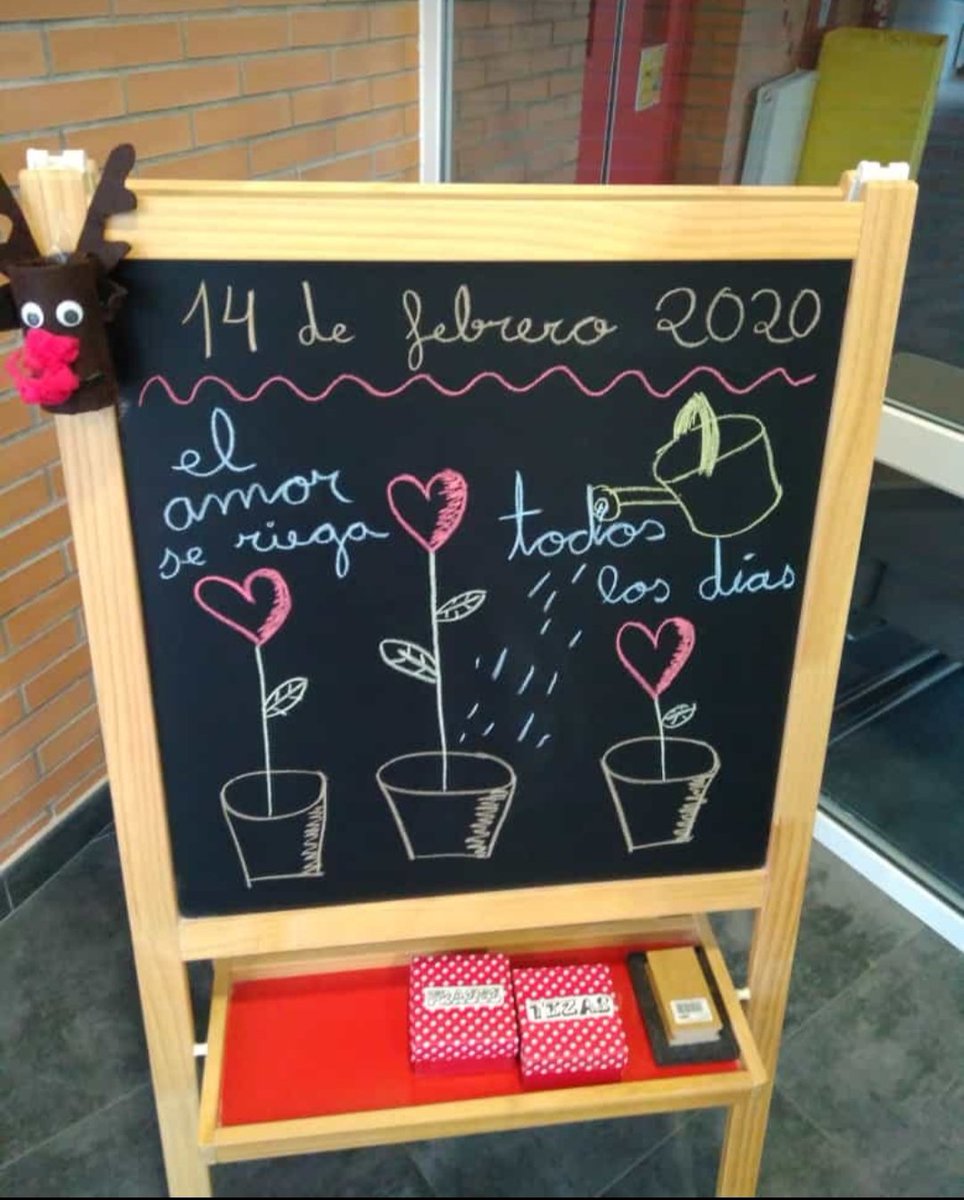 14 de febrero 2020
el
amor
se riega
todos
los días
TIZAS